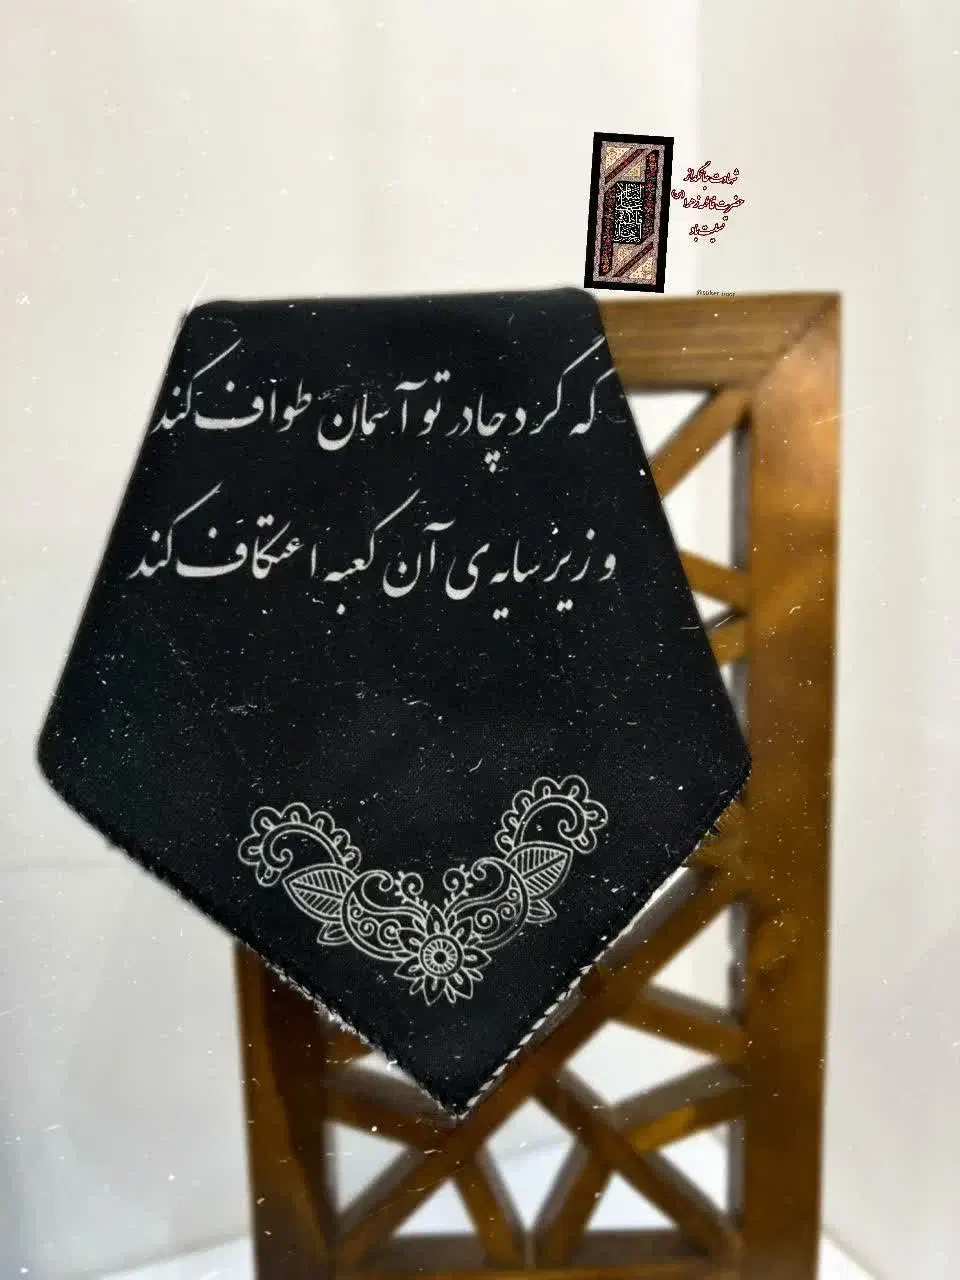 شهادت جانگداز
حضرت فاطمه زهرا (س)
تسلیت باد
که گرد چادر تو آسمان طواف کند
و زیر سایه ی آن کعبه اعتکاف کند